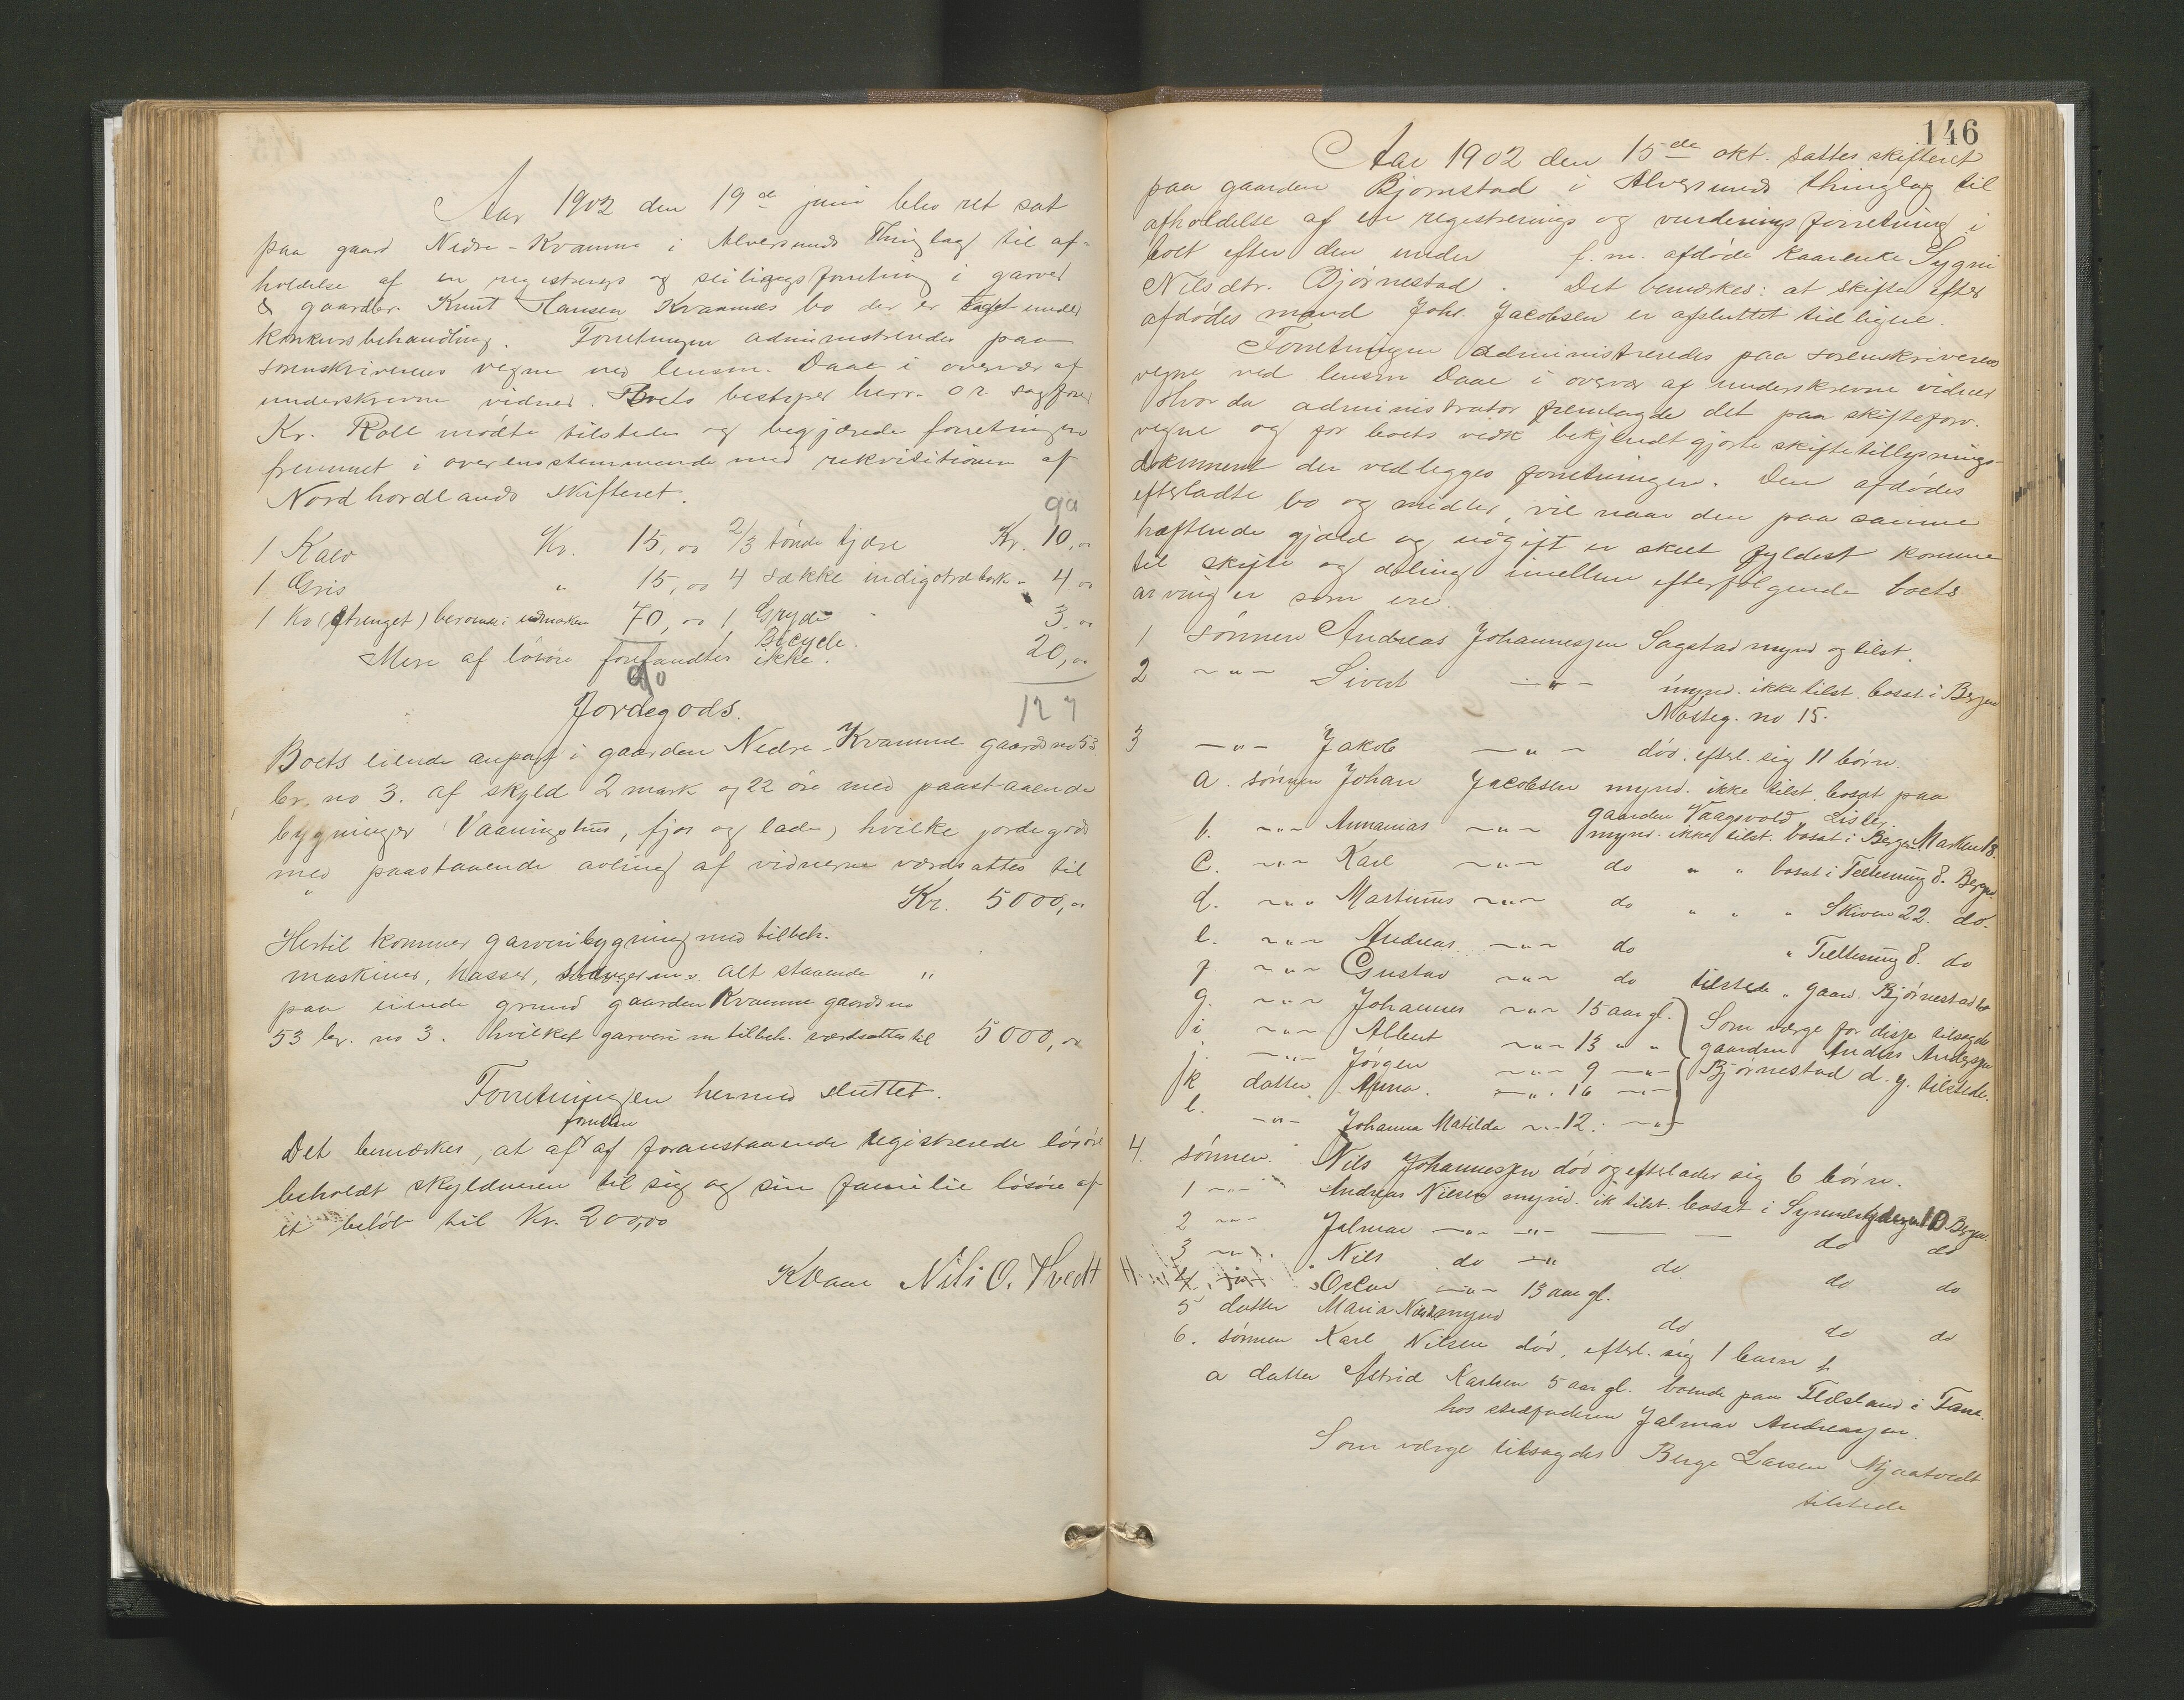 Aar 1902 den 19de juni blev ret sat
paa gaard Nedre-Kvamme i Alversunds Thinglag til af-
holdelse af en registrerings og seiligngsforretning i garver
& gaardbr. Knut Hansen Kvammes bo der er taget under
konkursbehandling. Forretningen administreredes paa
sorenskriverens vegne ved lensm. Daae i overvær af
underskrevne vidner. Boets bestyrer herr. or. sagfører
Kr. Roll mødte tilstede og begjærede forretningen
fremmet i overensstemmende med rekvisitionen af
Nordhordlands skifteret.
90
1 Kalv Kr. 15,00 2/3 tønde tjære Kr. 10,00
1 Gris " 15,00 4 sække indigotræbark " 4,00
1 Ko (struget) beroende i udmarken 70,00 1 Gryde " 3,00
1 Bicycle. 20,00
Mere af løsøre forefandtes ikke.
90
127
Jordegods.
Boets eiende anpart i gaarden Nedre-Kvamme gaards no 53
br. no 3. af skyld 2 mark og 22 øre med paastaaende
bygninger (Vaaningshus, fjøs og lade) hvilke jordegods
med paastaaende avling af vidnerne værdsattes til
Kr. 5000,00
Hertil kommer garveribygning med tilbeh.
maskiner, kasser, stænger m.v. alt staaende "
paa eiende grund gaarden Kvamme gaards no
53 br. no 3. hvilket garveri m tilbeh. værdsattes til 5000,00
Forretningen hermed sluttet.
foruden
Det bemærkes, at af af foranstaaende registrerede løsøre
beholdt skyldneren til sig og sin familie løsøre af
et beløb til Kr. 200,00
K Daae Nils O. Tvedt
146
Aar 1902 den 15de okt. sattes skifteret
paa gaarden Bjørnestad i Alversunds thinglag til
afholdelse af en registrerings og vurderingsforretning i
boet efter den under f. m. afdøde kaarenke Sygni
Nilsdtr. Bjørnestad. Det bemærkes: at skifte efter
afdødes mand Johs. Jacobsen er afsluttet tidligere.
Forretningen administreredes paa sorenskriverens
vegne ved lensm Daae i overvær af underskrevne vidner
Hvor da administrator fremlagde det paa skifteforv.
vegne og for boets vedk bekjendtgjorte skiftetillysnings-
dokument der vedlegges forretningen. Den afdødes
efterladte bo og midler, vil naar den paa samme
hæftende gjæld og udgift er skeet fyldest komme
til skifte og deling imellem efterfølgende boets
arvinger som ere.
1 sønnen Andreas Johannesen Sagstad mynd og tilst.
2 -"- Sivert -"- mynd. ikke tilst. bosat i Bergen
Nosteg. no 15.
3 -"- Jakob -"- død. efterl. sig 11 børn.
a. sønnen Johan Jacobsen mynd. ikke tilst. bosat paa
gaarden Vaagsvold, Liste.
b. -"- Annanias -"- mynd. ikke tilst. bosat i Bergen Marken 18.
c. -"- Karl -"- do " " bosat i Teltesmug 8. Bergen
d. -"- Martinus -"- do " " " Skiven 22. do.
e. -"- Andreas -"- do " Teltesmug 8. do
f. -"- Gustav -"- do tilstede " gaard. Bjørnestad
g. -"- Johannes -"- 15 aar gl. Som værge for disse tilsagdes
i -"- Albert -"- 13 " " gaardm Anders Andersen
j. -"- Jørgen -"- 9 -"- Bjørnestad d. y. tilstede.
k datter Anna. -"- 16 -"-
l. -"- Johanna Matilda -"- 12. -"-
4. sønnen. Nils Johannesen død og efterlader sig 6 børn.
1 -"- Andreas Nilsen mynd. ik tilst. bosat i 10 Bergen.
2 -"- Jalmar -"- -"- do do
3 -"- Nils do -"- do do do
4 -"- Oskar -"- 13 aar gl.
5 datter Maria Nilsd mynd do do do
6. sønnen Karl Nilsen død, efterl. sig 1 barn
a datter Astrid Karlsen 5 aar gl. boende paa Flesland i Fane.
hos stedfaderen Jalmar Andreasen.
Som værge tilsagdes Berge Larsen Mjaatvedt
tilstede